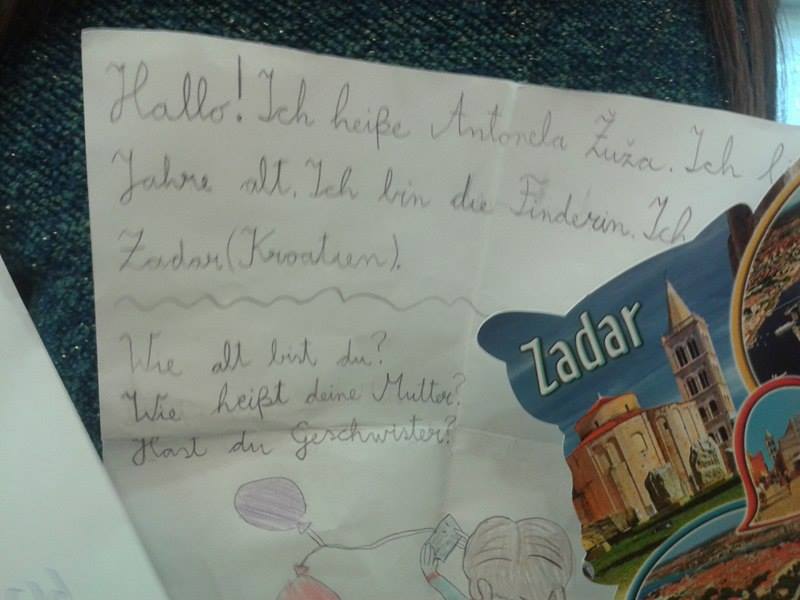 Hallo! Ich heiße Antonela Žuža. Ich
Jahre alt. Ich bin die Finderin. Ich
Zadar (Kroatien).
Wie alt bist du?
Wie heißt deine Mutter?
Hast du Geschwister?
Zadar